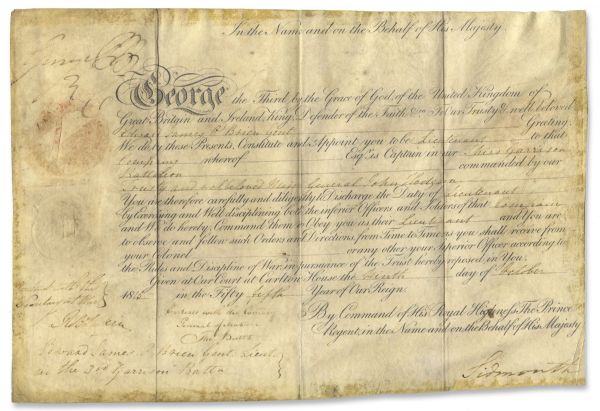 In the Name and on the Behalf of His Majesty
George the Third by the Grace of God, of the United Kingdom of
Great Britain and Ireland, King, Defender of the Faith &c To Our Trusty & well beloved
Edward James O'Brien Gent Greeting
We do by these Presents, Constitute and Appoint you to be Lieutenant to that
Company whereof Esqr. is Captain in our Garrison
Battalion commanded by our
Trusty and welbeloved General John Hodgson
You are therefore carefully and diligently to Discharge the Duty of Lieutenant
by Exercising and Well disciplining both the inferior Officers and Soldiers of that Company
and We do hereby Command them to Obey you as their Lieutenant and You are
to observe and follow such Orders and Directions from Time to Time as you shall receive from
your Colonel or any other your Superior Officer according to
the Rules and Discipline of War, in pursuance of the Trust hereby reposed in You.
Given at Our Court at Carlton House the tenth day of October
1815 in the Fifty fifth Year of Our Reign.
Entered with the
General of
By Command of His Royal Highness The Prince
Regent, in the Name and on the Behalf of His Majesty
Sidmouth
Edward James O'Brien Gent Lieut
in the 3rd Garrison Battn